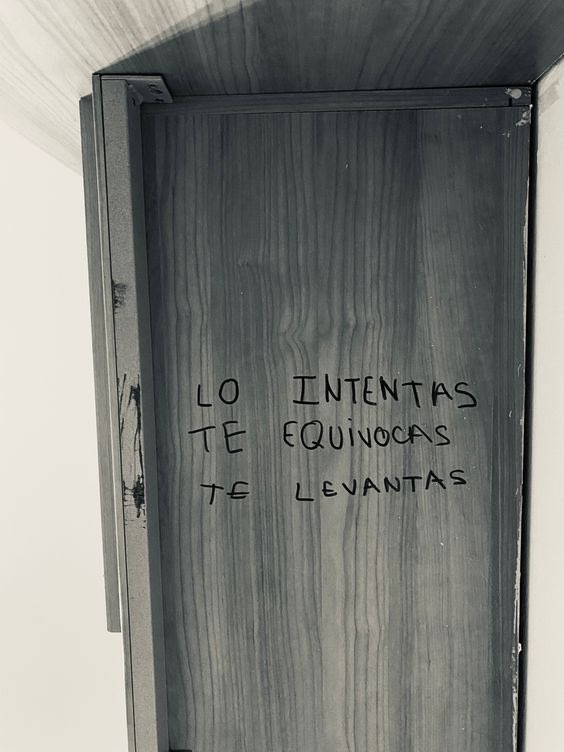 LO INTENTAS
TE EQUIVOCAS
TE LEVANTAS